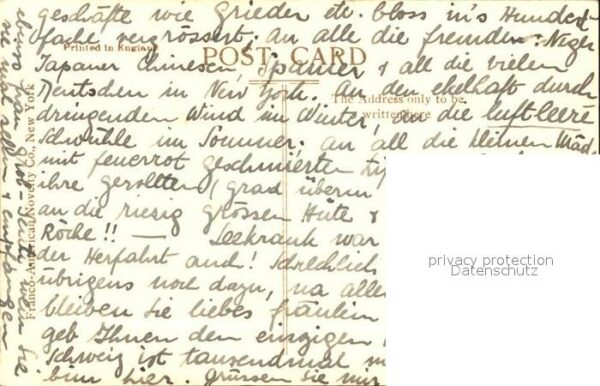 geschäfte wie Grieder etc. bloss in's Hundert-
fache vergrössert; an alle die fremden: Neger
Printed in England
POST CARD
Japaner Chinesen, Spanier & all die vielen
Deutschen in New York. An den ekelhaft durch
The Address only to be
written here
dringenden Wind im Winter, an die luftleere
Schwühle im Sommer; an all die kleinen Mäd
mit feuerrot geschmierten
ihre gerollten (grad überm
an die riesig grossen Hüte &
Röcke!! — Seekrank war
der Herfahrt auch! Schrecklich
übrigens noch dazu, na alle
bleiben Sie liebes fräulein
geb Ihnen den einzigen
Schweiz ist tausendmal
bin hier. Grüssen Sie mir
Franco-American Novelty Co., New York
privacy protection
Datenschutz